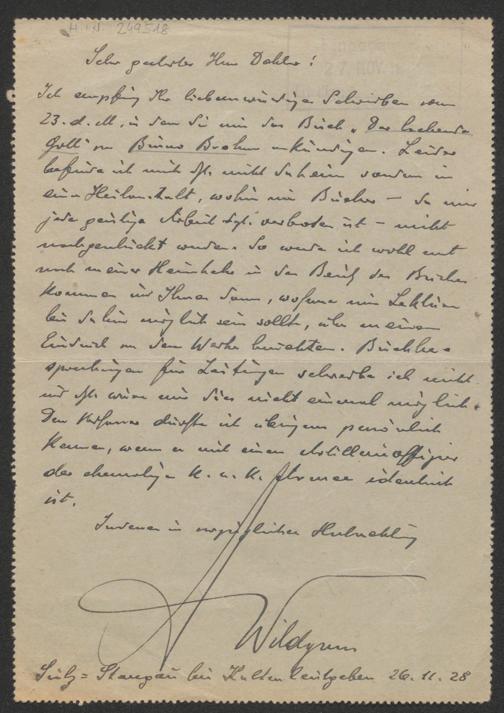 H.I.N. 249518
27. NOV.
Sehr geehrter Herr Doktor!
Ich empfing Ihr liebenswürdiges Schreiben vom
23. d. M., in dem Sie mir das Buch „Der lachende
Gott" von Bruno Brehm ankündigen. Leider
befinde ich mich dzt. nicht daheim sondern in
einer Heilanstalt, wohin mir Bücher – da mir
jede geistige Arbeit dzt. verboten ist – nicht
nachgeschickt werden. So werde ich wohl erst
nach meiner Heimkehr in den Besitz des Buches
kommen und Ihnen dann, wofern mir Lektüre
bis dahin möglich sein sollte, über meinen
Eindruck von dem Werke berichten. Buchbe-
sprechungen für Zeitungen schreibe ich nicht
und dzt. wäre mir dies nicht einmal möglich.
Den Verfasser dürfte ich übrigens persönlich
kennen, wenn er mit einem Artillerieoffizier
der ehemaligen K. u. K. Armee identisch
ist.
Indessen in vorzüglicher Hochachtung
Wildgans
Sulz-Stangau bei Kaltenleutgeben 26.11.28